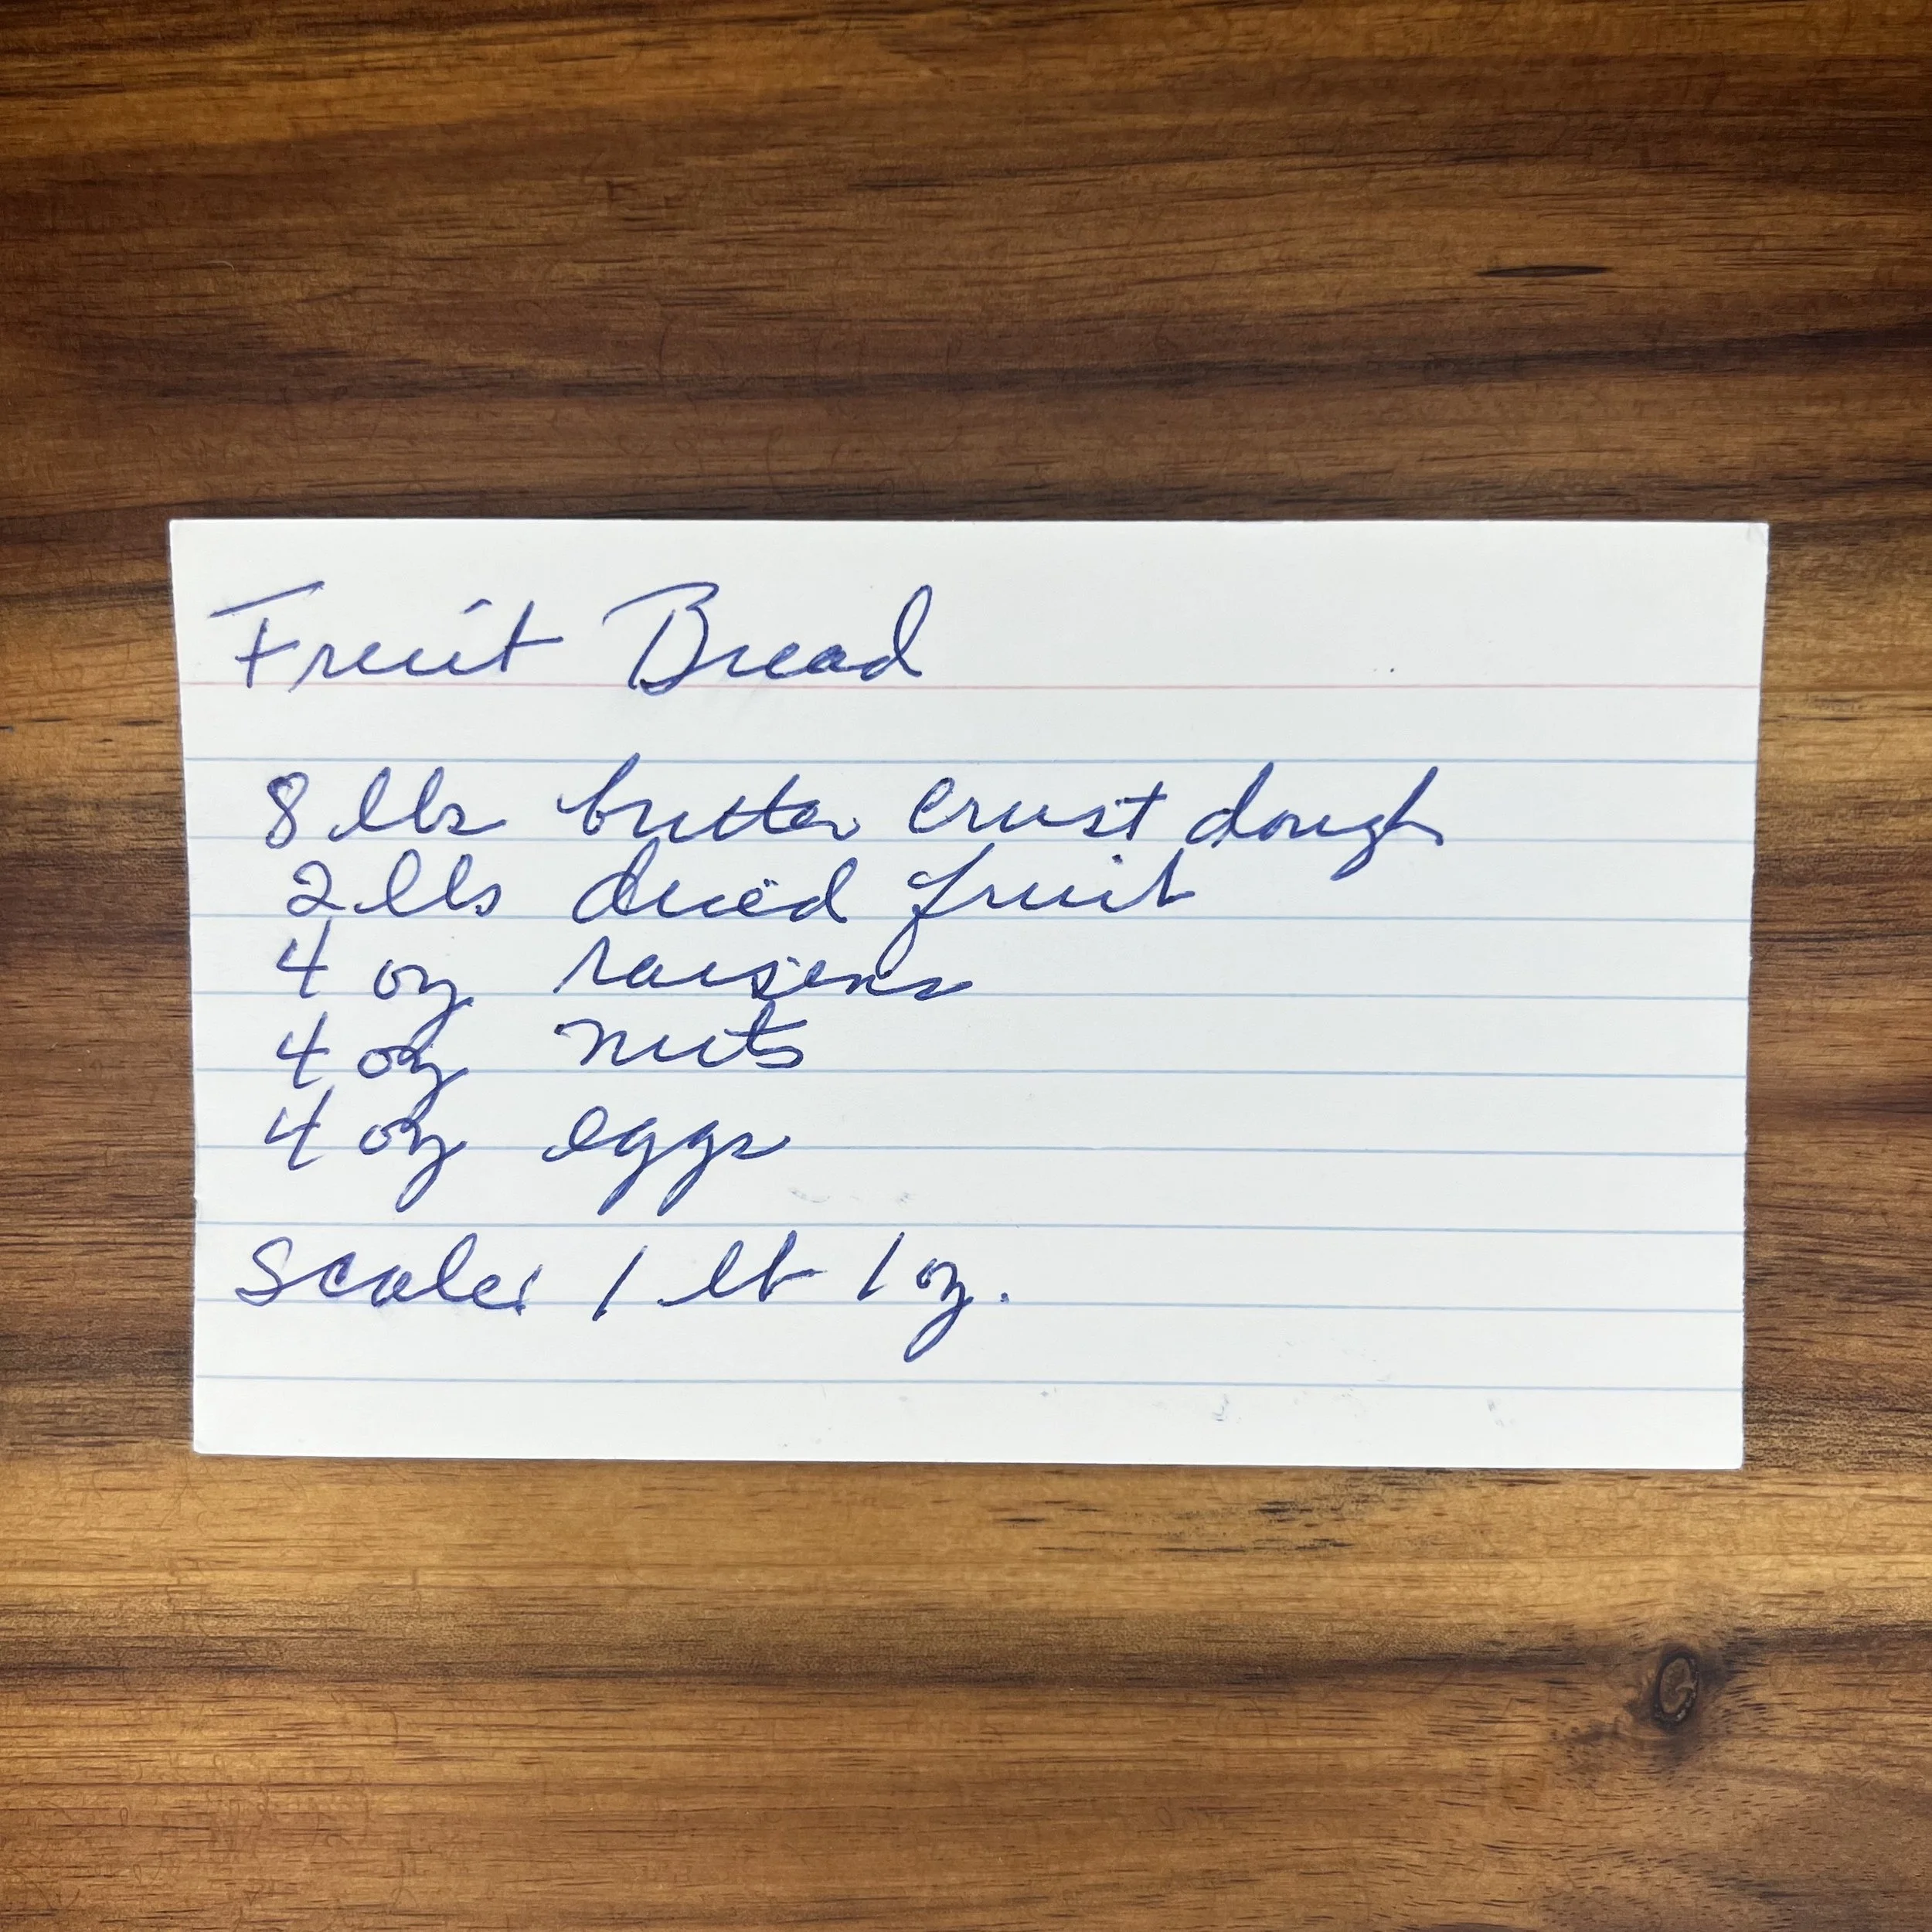 Fruit Bread
8 lbs butter crust dough
2 lbs dried fruit
4 oz raisins
4 oz nuts
4 oz eggs
Scale: 1 lb 1 oz.